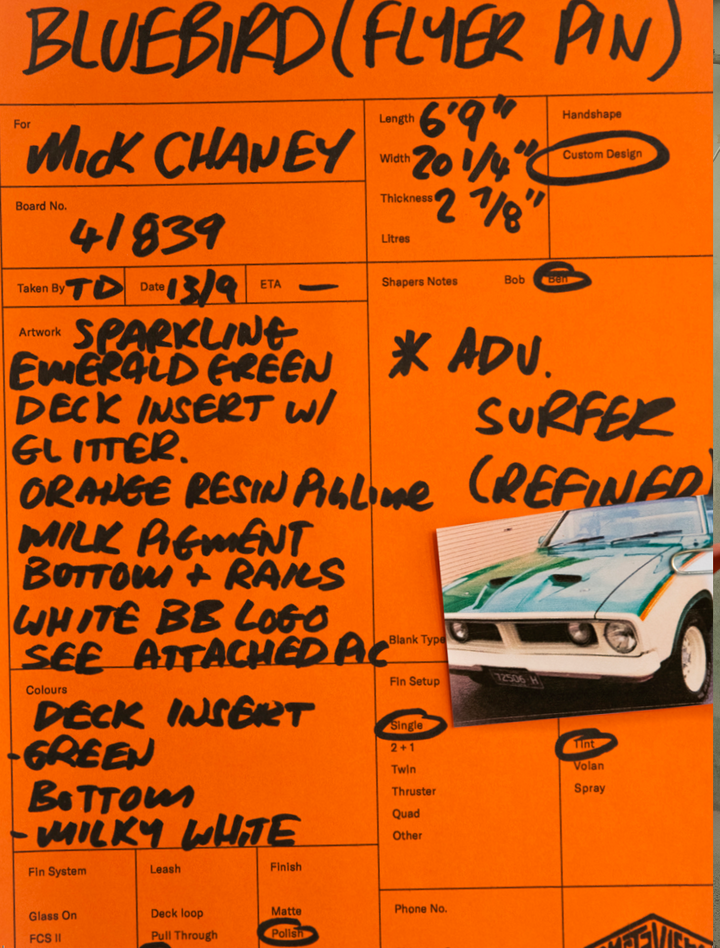 BLUEBIRD (FLYER PIN)
For
MICK CHANEY
Board No.
41839
Taken By TD Date 13/9 ETA —
Length 6'9"
Width 20 1/4"
Thickness 2 7/8"
Litres
Handshape
Custom Design
Shapers Notes Bob Ben
* ADV.
SURFER
(REFINED)
Artwork SPARKLING
EMERALD GREEN
DECK INSERT W/
GLITTER.
ORANGE RESIN PINLINE
MILK PIGMENT
BOTTOM + RAILS
WHITE BB LOGO
SEE ATTACHED PIC
Blank Type
Colours
DECK INSERT
-GREEN
BOTTOM
-MILKY WHITE
Fin Setup
Single
2 + 1
Twin
Thruster
Quad
Other
Tint
Volan
Spray
Fin System
Glass On
FCS II
Leash
Deck loop
Pull Through
Finish
Matte
Polish
Phone No.